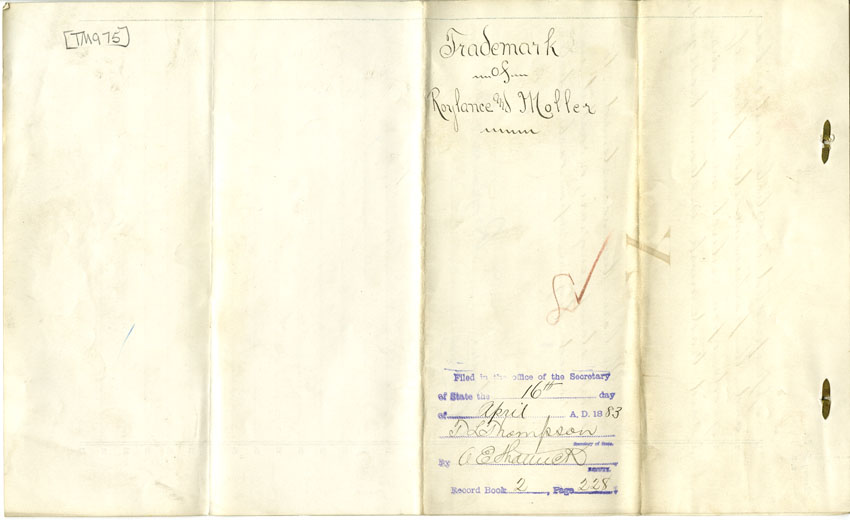 [TM975]
Trademark
of
Roylance & Moller
Filed in the office of the Secretary
of State the 16th day
of April A. D. 1883
T L Thompson
Secretary of State.
By A E Shattuck
DEPUTY.
Record Book 2, Page 228